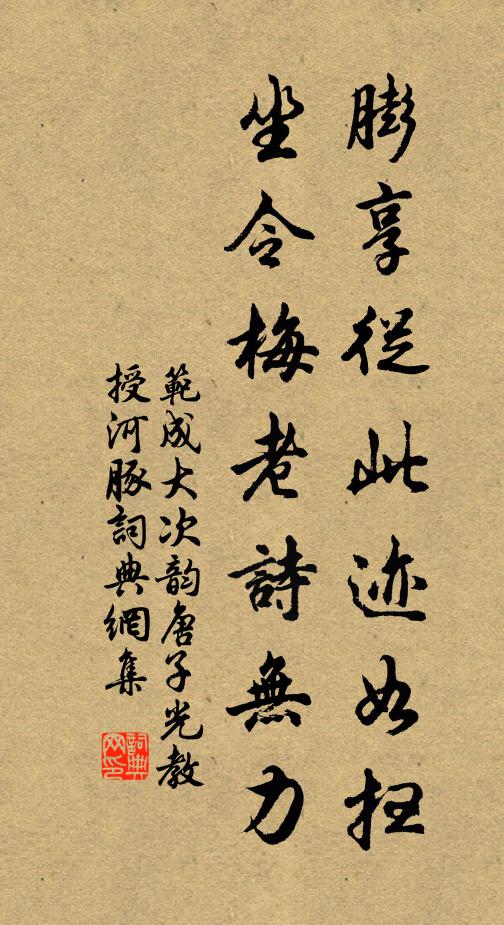 膨享從此迹如扫
坐令梅老詩無力
範成大次韵唐子光教
授河豚詞典網集
詞典网印